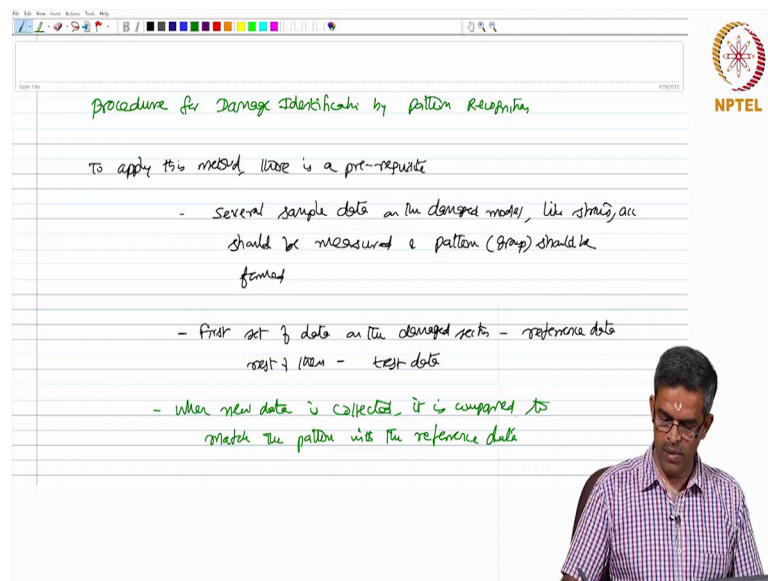 File Edit View Insert Actions Tools Help
B I
Note Title
4/19/2018
NPTEL
Procedure for Damage Identification by pattern Recognition
To apply this method, there is a pre-requisite
- Several sample data on the damaged model, like strain, acc
should be measured & pattern (group) should be
formed
- First set of data on the damaged section - reference data
rest of them - test data
- When new data is collected, it is compared to
match the pattern with the reference data